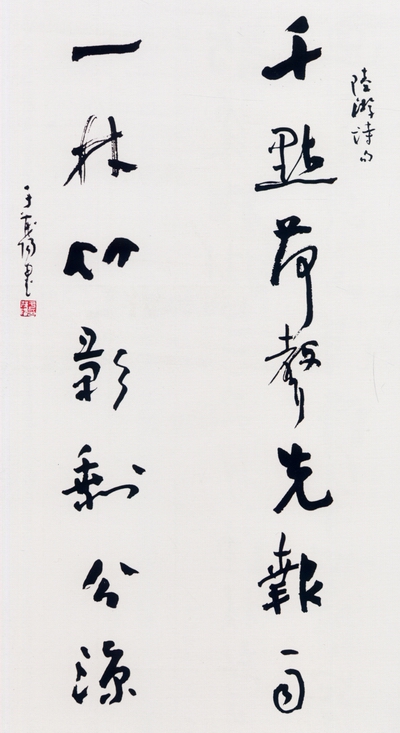 陸游詩句
千點荷聲先報雨
一林竹影剩分涼
于茂陽書